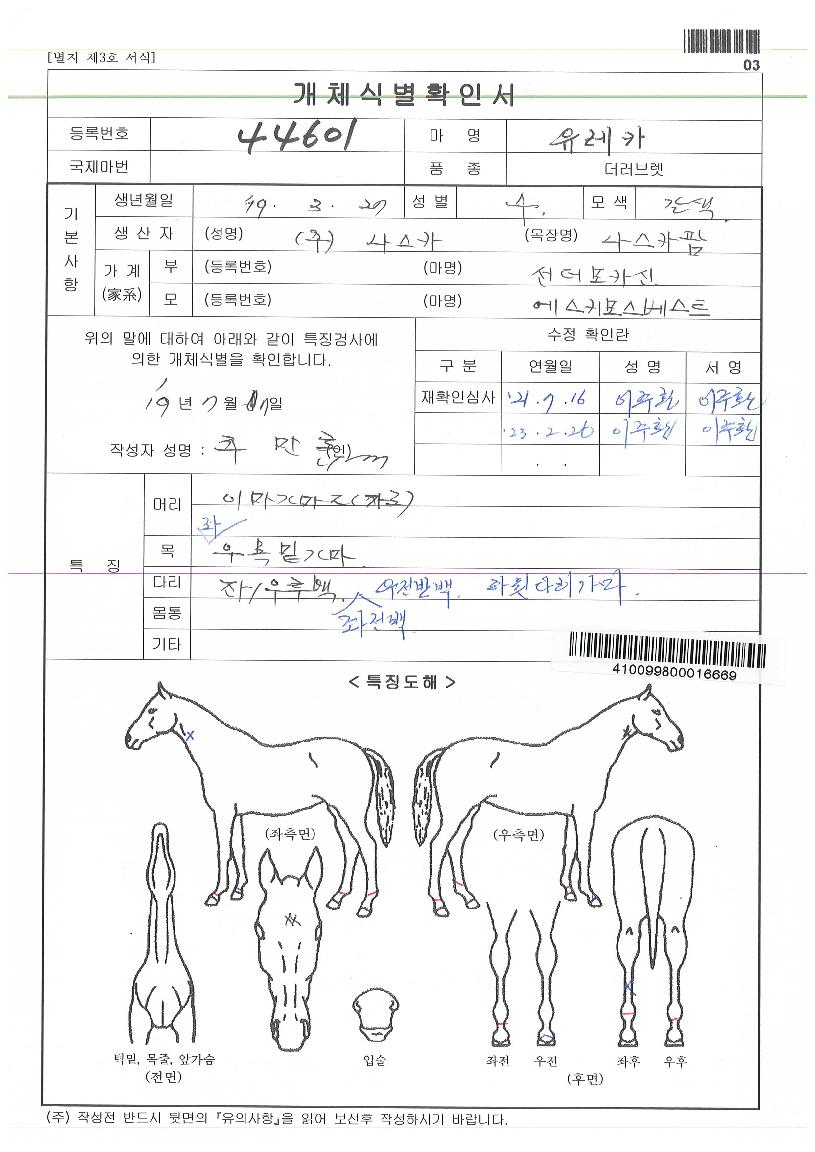 [별지 제3호 서식]
03
개체식별확인서
등록번호 44601 마 명 유레카
국제마번 품 종 더러브렛
기본사항
생년월일 '19. 3. 27 성별 수. 모색 갈색
생산자 (성명) (주) 나스카 (목장명) 나스카팜
가계 (家系) 부 (등록번호) (마명) 선더모카신
모 (등록번호) (마명) 에스키모스베스트
위의 말에 대하여 아래와 같이 특징검사에
의한 개체식별을 확인합니다.
'19 년 7 월 일
작성자 성명 : 추 만 (인)
수정 확인란
구 분 연월일 성 명 서 명
재확인심사 '21. 7. 16 이주환 이주환
'23. 2. 26 이주환 이주환
. .
특 징
머리 이마가마
좌
목 우목밑가마
다리 좌/우후백. 우전반백. 좌뒷다리가마.
좌전백
몸통
기타
410099800016669
< 특징도해 >
(좌측면) (우측면)
턱밑, 목줄, 앞가슴
(전면)
입술
좌전 우전 좌후 우후
(후면)
(주) 작성전 반드시 뒷면의 『유의사항』을 읽어 보신후 작성하시기 바랍니다.